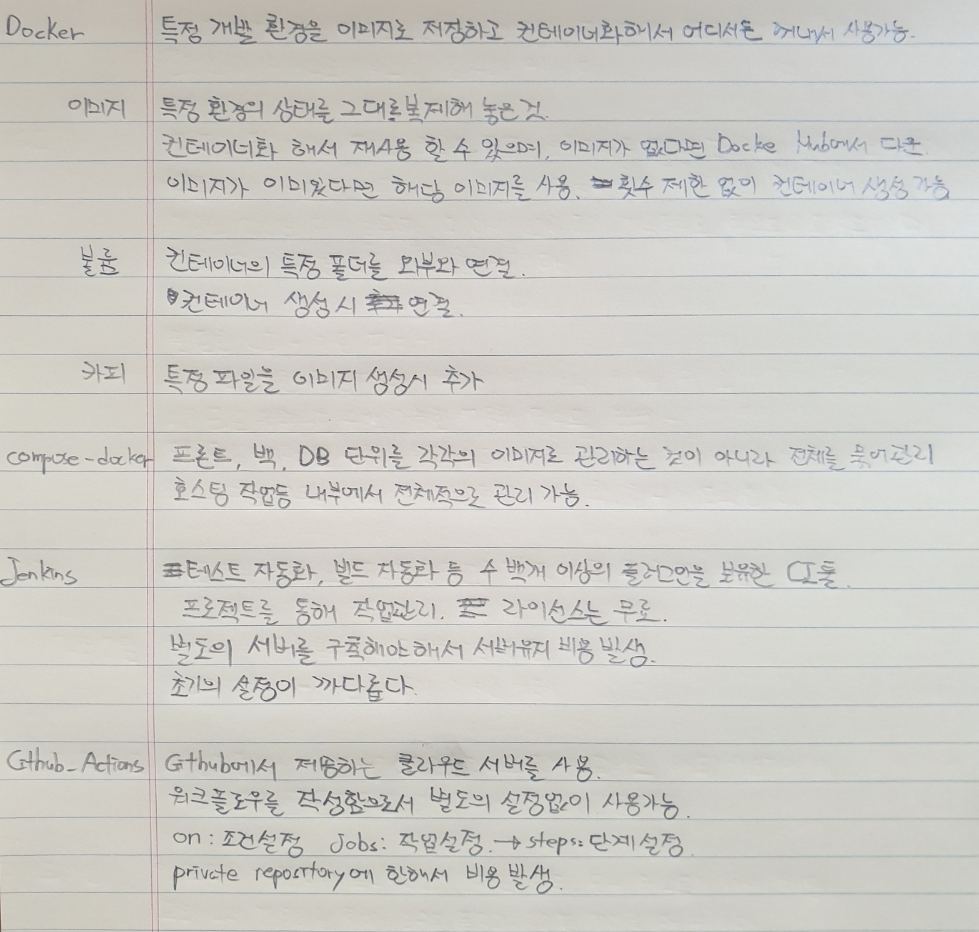 Docker 특정 개발 환경을 이미지로 저장하고 컨테이너화해서 어디서든 꺼내서 사용가능.
이미지 특정 환경의 상태를 그대로 복제해 놓은 것.
컨테이너화 해서 재사용 할 수 있으며, 이미지가 없다면 Docke Hub에서 다운
이미지가 이미있다면 해당 이미지를 사용. 횟수 제한 없이 컨테이너 생성 가능
볼륨 컨테이너의 특정 폴더를 외부와 연결.
컨테이너 생성시 연결.
카피 특정 파일을 이미지 생성시 추가
compose-docker 프론트, 백, DB 단위를 각각의 이미지로 관리하는 것이 아니라 전체를 묶어관리
호스팅 작업등 내부에서 전체적으로 관리 가능.
Jenkins 테스트 자동화, 빌드 자동화 등 수 백개 이상의 플러그인을 보유한 CI툴.
프로젝트를 통해 작업관리. 라이선스는 무료.
별도의 서버를 구축해야해서 서버유지 비용 발생.
초기의 설정이 까다롭다.
Github_Actions Github에서 제공하는 클라우드 서버를 사용.
워크플로우를 작성함으로서 별도의 설정없이 사용가능.
on: 조건설정 Jobs: 작업설정. → steps: 단계설정
private repository에 한해서 비용 발생.